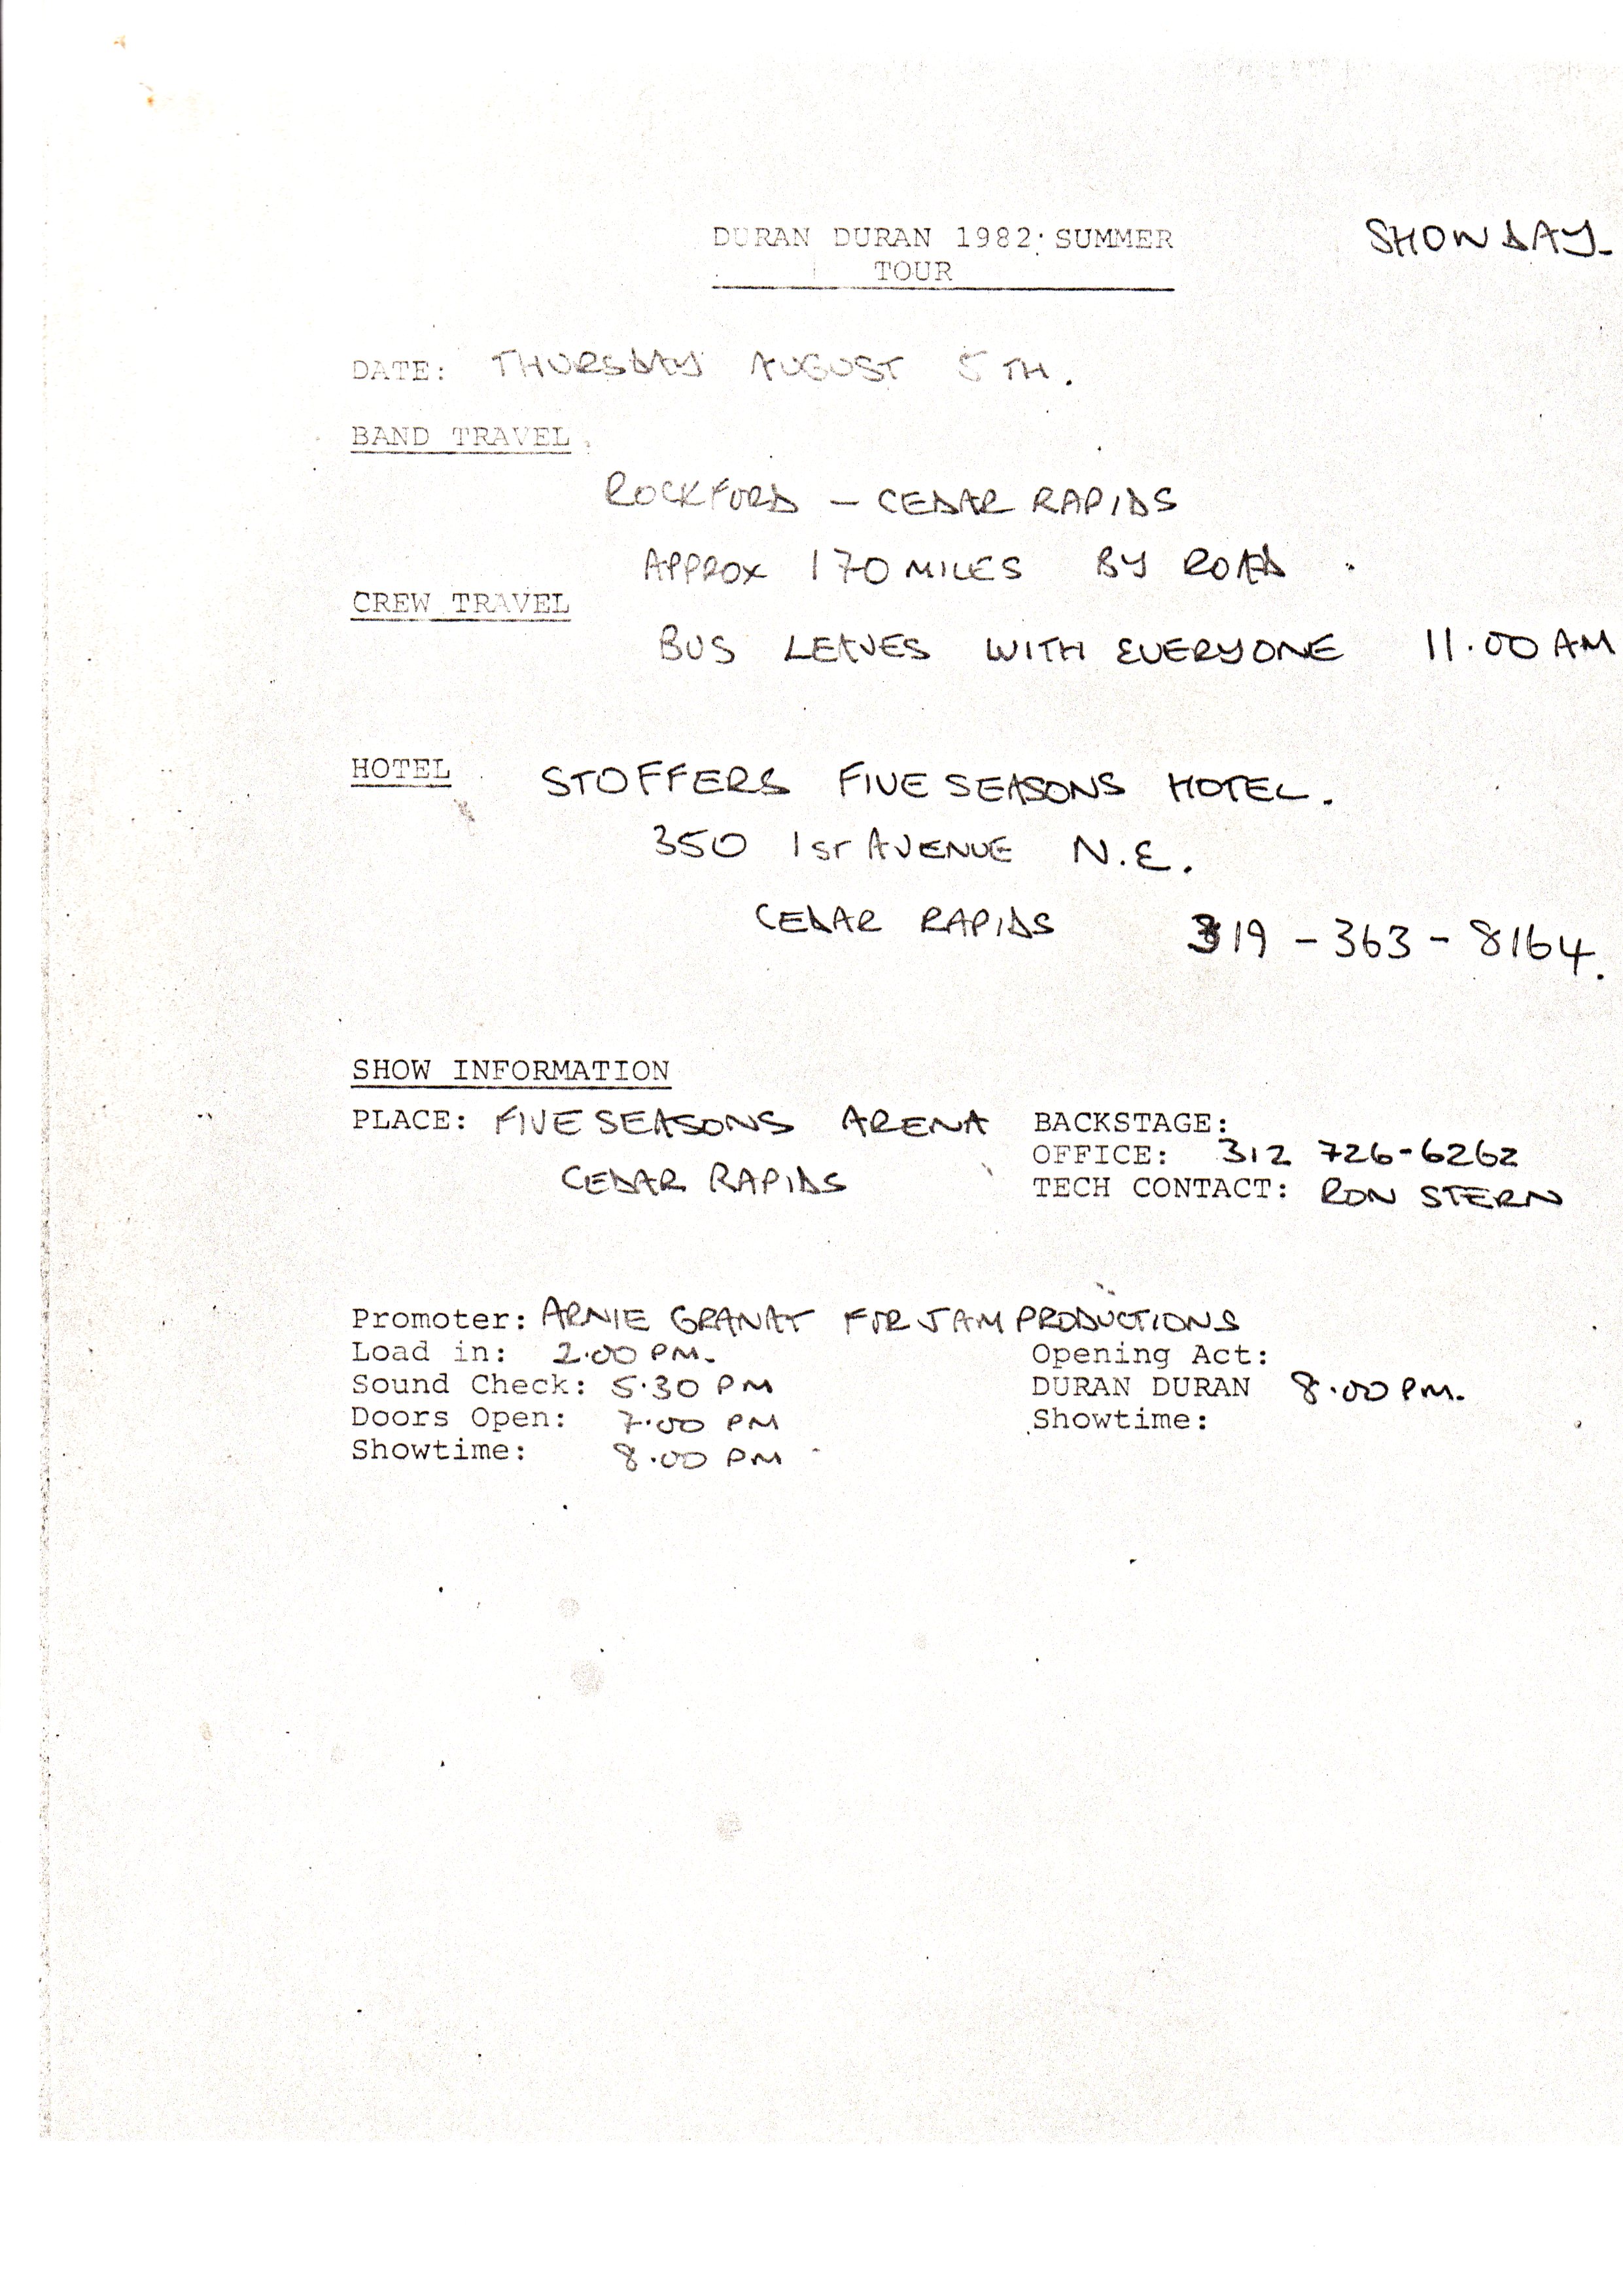 DURAN DURAN 1982 SUMMER
TOUR
SHOWDAY
DATE: THURSDAY AUGUST 5TH.
BAND TRAVEL
ROCKFORD - CEDAR RAPIDS
APPROX 170 MILES BY ROAD
CREW TRAVEL
BUS LEAVES WITH EVERYONE 11.00 AM
HOTEL STOFFERS FIVE SEASONS HOTEL.
350 1ST AVENUE N.E.
CEDAR RAPIDS 319 - 363 - 8164.
SHOW INFORMATION
PLACE: FIVE SEASONS ARENA
CEDAR RAPIDS
BACKSTAGE:
OFFICE: 312 726-6262
TECH CONTACT: RON STERN
Promoter: ARNIE GRANAT FOR JAM PRODUCTIONS
Load in: 2.00 PM.
Sound Check: 5.30 PM
Doors Open: 7.00 PM
Showtime: 8.00 PM
Opening Act:
DURAN DURAN 8.00 PM.
Showtime: